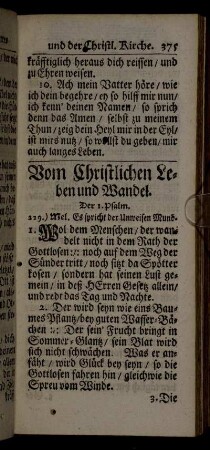 und der Christl. Kirche. 375
kräfftiglich heraus dich reissen / und
zu Ehren weisen.
10. Ach mein Vatter höre / wie
ich dein begehre / ey so hilff mir nun /
ich kenn' deinen Namen / so sprich
denn das Amen / selbst zu meinem
Thun / zeig dein Heyl mir in der Eyl /
ist mirs nutz / so wollst du geben / mir
auch langes Leben.
Vom Christlichen Le-
ben und Wandel.
Der 1. Psalm.
229.) Mel. Es spricht der Unweisen Mund.
1. Wol dem Menschen / der wan-
delt nicht in dem Rath der
Gottlosen :/: noch auf dem Weg der
Sünder tritt / noch sitzt da Spötter
kosen / sondern hat seinen Lust ge-
mein / in deß HErren Gesetz allein /
und redt das Tag und Nachte.
2. Der wird seyn wie eins Bau-
mes Pflantz / bey guten Wasser-Bä-
chen :/: Der sein' Frucht bringt in
Sommer-Glantz / sein Blat wird
sich nicht schwächen. Was er an-
fäht / wird Glück bey seyn / so die
Gottlosen fahren hin / gleichwie die
Spreu vom Winde.
3. Die